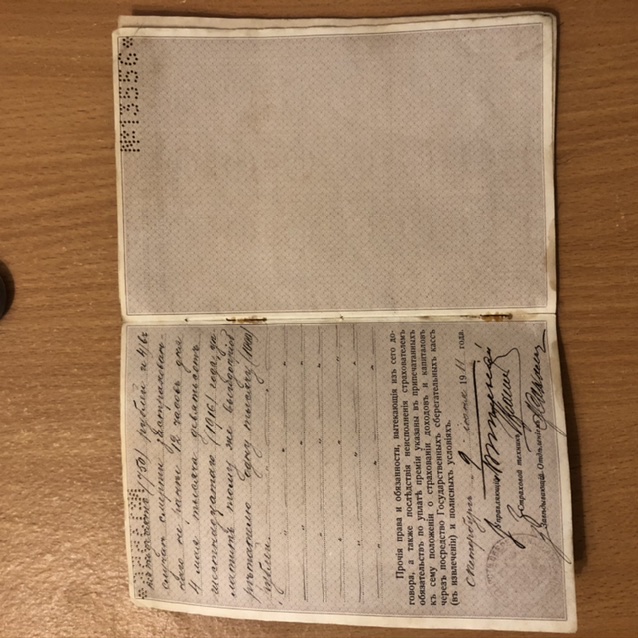 №13556*
/750/ рублей и
случаѣ смерти застрахован-
наго не ранѣе 12 часовъ дня
4 мая тысяча девятьсотъ
шестнадцатаго /1916/ года, уп-
латить тому же выгодопріоб-
рѣтателю Одну тысячу /1000/
рублей.
Прочія права и обязанности, вытекающія изъ сего до-
говора, а также послѣдствія неисполненія страхователемъ
обязательствъ по уплатѣ преміи указаны въ припечатанныхъ
къ сему положеніи о страхованіи доходовъ и капиталовъ
черезъ посредство Государственныхъ сберегательныхъ кассъ
(въ извлеченіи) и полисныхъ условіяхъ.
С.-Петербургъ, 1911 года.
Управляющій
Страховой техникъ
Завѣдывающій Отдѣленіемъ